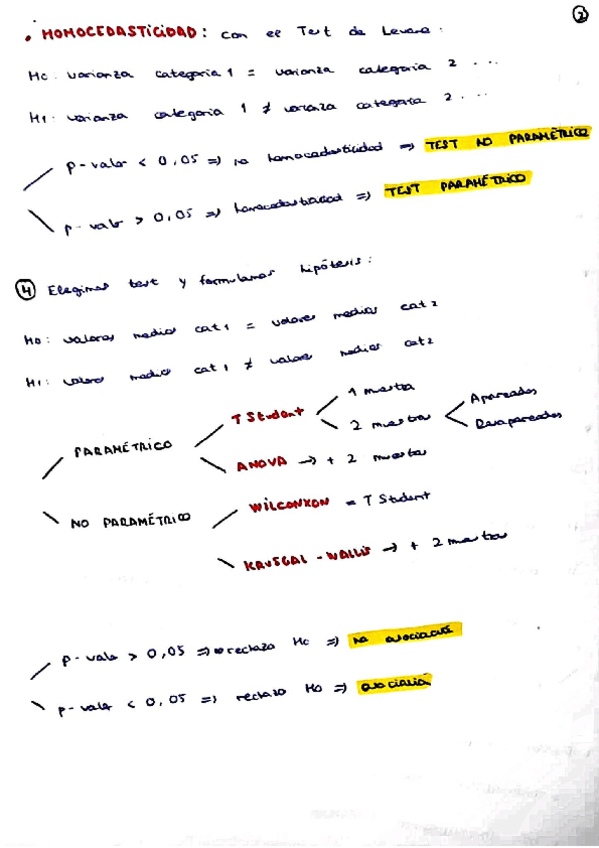 2
• HOMOCEDASTICIDAD: con el Test de Levene:
H0: varianza categoria 1 = varianza categoria 2 ...
H1: varianza categoria 1 ≠ varianza categoria 2 ...
p-valor < 0,05 => no homocedasticidad => TEST NO PARAMÉTRICO
p-valor > 0,05 => homocedasticidad => TEST PARAMÉTRICO
4 Elegimos test y formulamos hipótesis:
H0: valores medios cat 1 = valores medios cat 2
H1: valores medios cat 1 ≠ valores medios cat 2
PARAMÉTRICO
T Student
1 muestra
2 muestras
Apareados
Desapareados
ANOVA → + 2 muestras
NO PARAMÉTRICO
WILCONXON = T Student
KRUSGAL - WALLIS → + 2 muestras
p-valor > 0,05 => no rechazo H0 => no asociación
p-valor < 0,05 => rechazo H0 =>